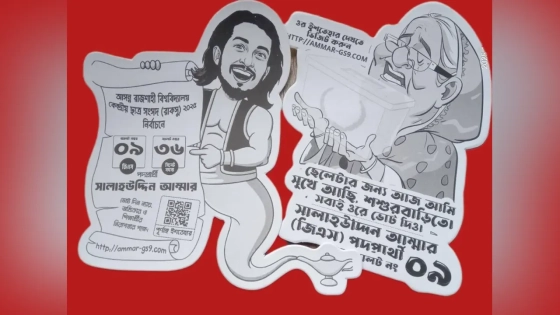 আসন্ন রাজশাহী বিশ্ববিদ্যালয়
কেন্দ্রীয় ছাত্র সংসদ (রাকসু) ২০২৫
নির্বাচনে
০৯
৩৬
জিএস
পদপ্রার্থী
সালাহউদ্দিন আম্মার
http://ammar-gs9.com
২র ইশতেহার দেখতে
ভিজিট করুন
HTTP://AMMAR-GS9.COM
ছেলেটার জন্য আজ আমি
সুখে আছি, শশুরবাড়িতে।
সবাই ওরে ভোট দিও।
সালাহউদ্দিন আম্মার
(জিএস) পদপ্রার্থী
ব্যালট নং ০৯